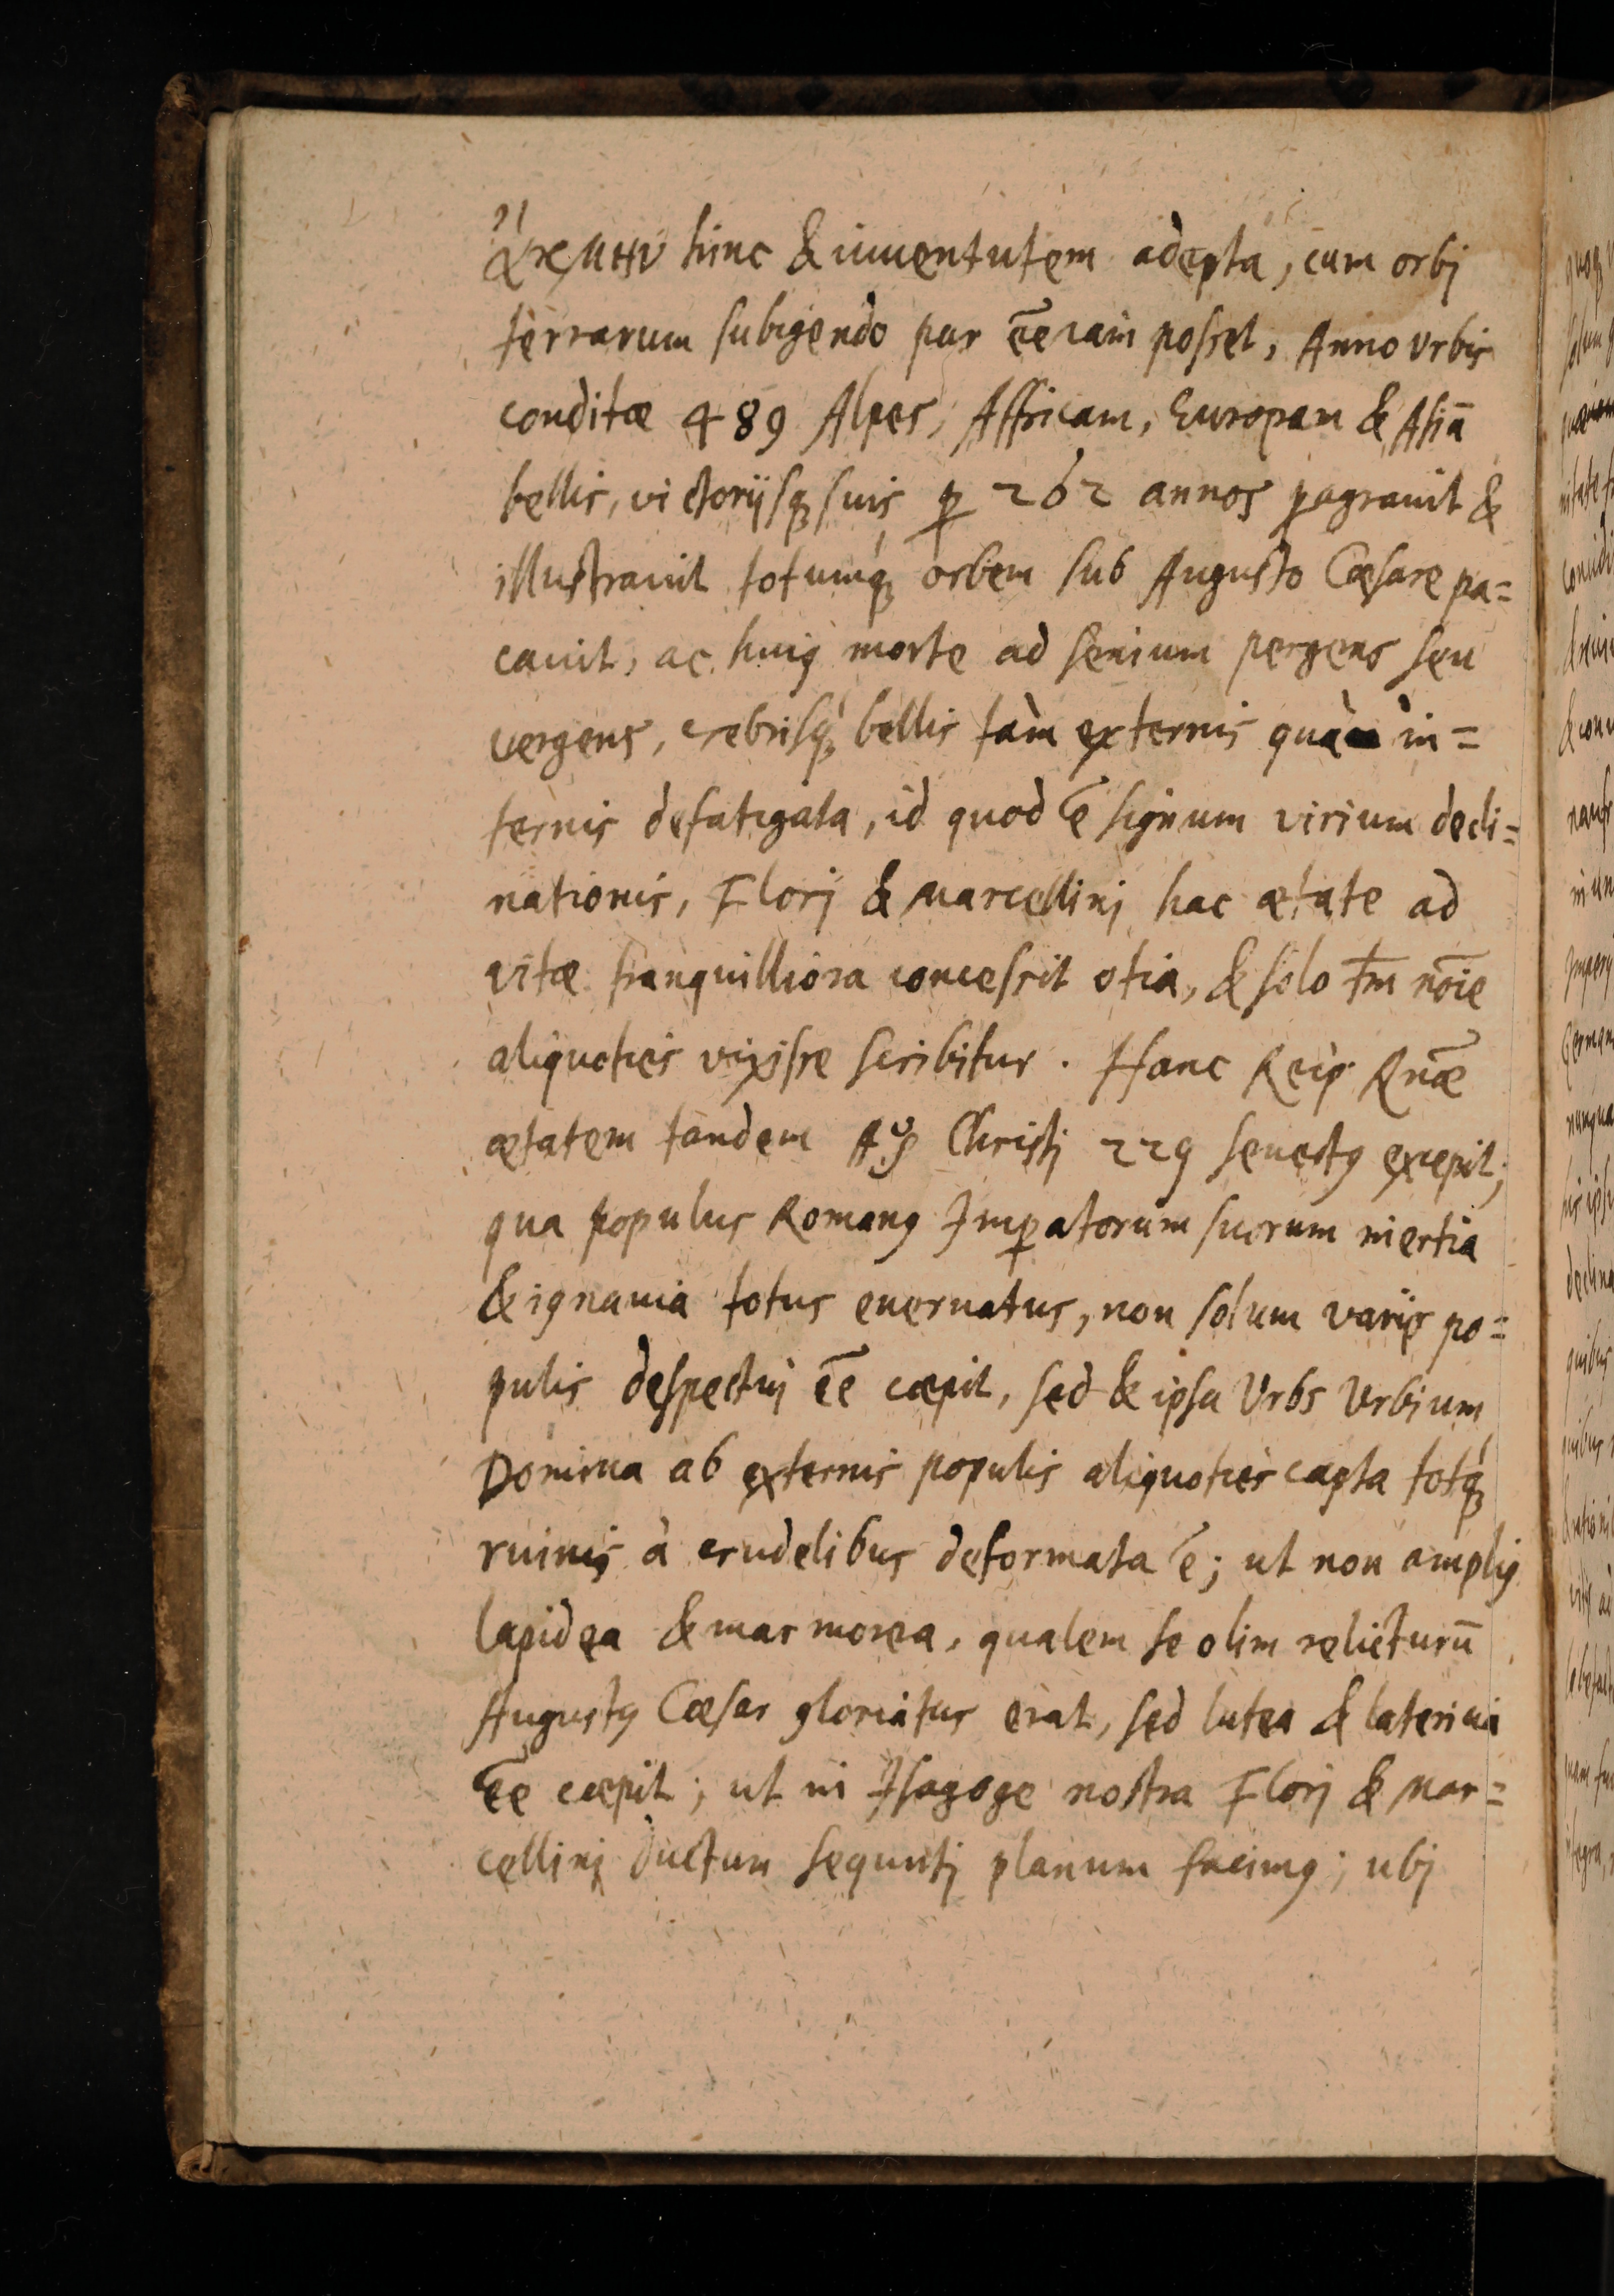 ἀκμὴν hinc & iuuentutem adepta, cum orbj
terrarum subigendo par ēē iam posset, Anno Vrbis
conditæ 489 Alpes, Affricam, Europam & Asiā
bellis, victorijsq́ꝫ suis ꝑ 262 annos ꝑagrauit &
illustrauit totumq́ꝫ orbem sub Augusto Cæsare pa=
cauit, ac huiꝰ morte ad senium pergens seu
vergens, crebrisq́ꝫ bellis tàm externis quàm in=
ternis defatigata, id quod ē signum virium decli=
nationis, Florj & Marcellinj hac ætate ad
vitæ tranquilliora concessit otia, & solo tm̄ nōie
aliquoties vixisse scribitur. Hanc Reip Rnāe
ætatem tandem Aº Christj 229 senectꝰ excepit,
qua populus Romanꝰ Imꝑatorum suorum inertia
& ignauia totus eneruatus, non solum varijs po=
pulis despectuj ēē cæpit, sed & ipsa Vrbs Vrbium
Domina ab externis populis aliquoties capta totq́ꝫ
ruinis à crudelibus deformata ē; ut non ampliꝰ
lapidea & marmorea, qualem se olim relicturū
Augustꝰ Cæsar gloriatus erat, sed lutea & latericia
ēē cæpit; ut in Isagoge nostra Florj & Mar=
cellinj ductum sequutj planum facimꝰ; ubj